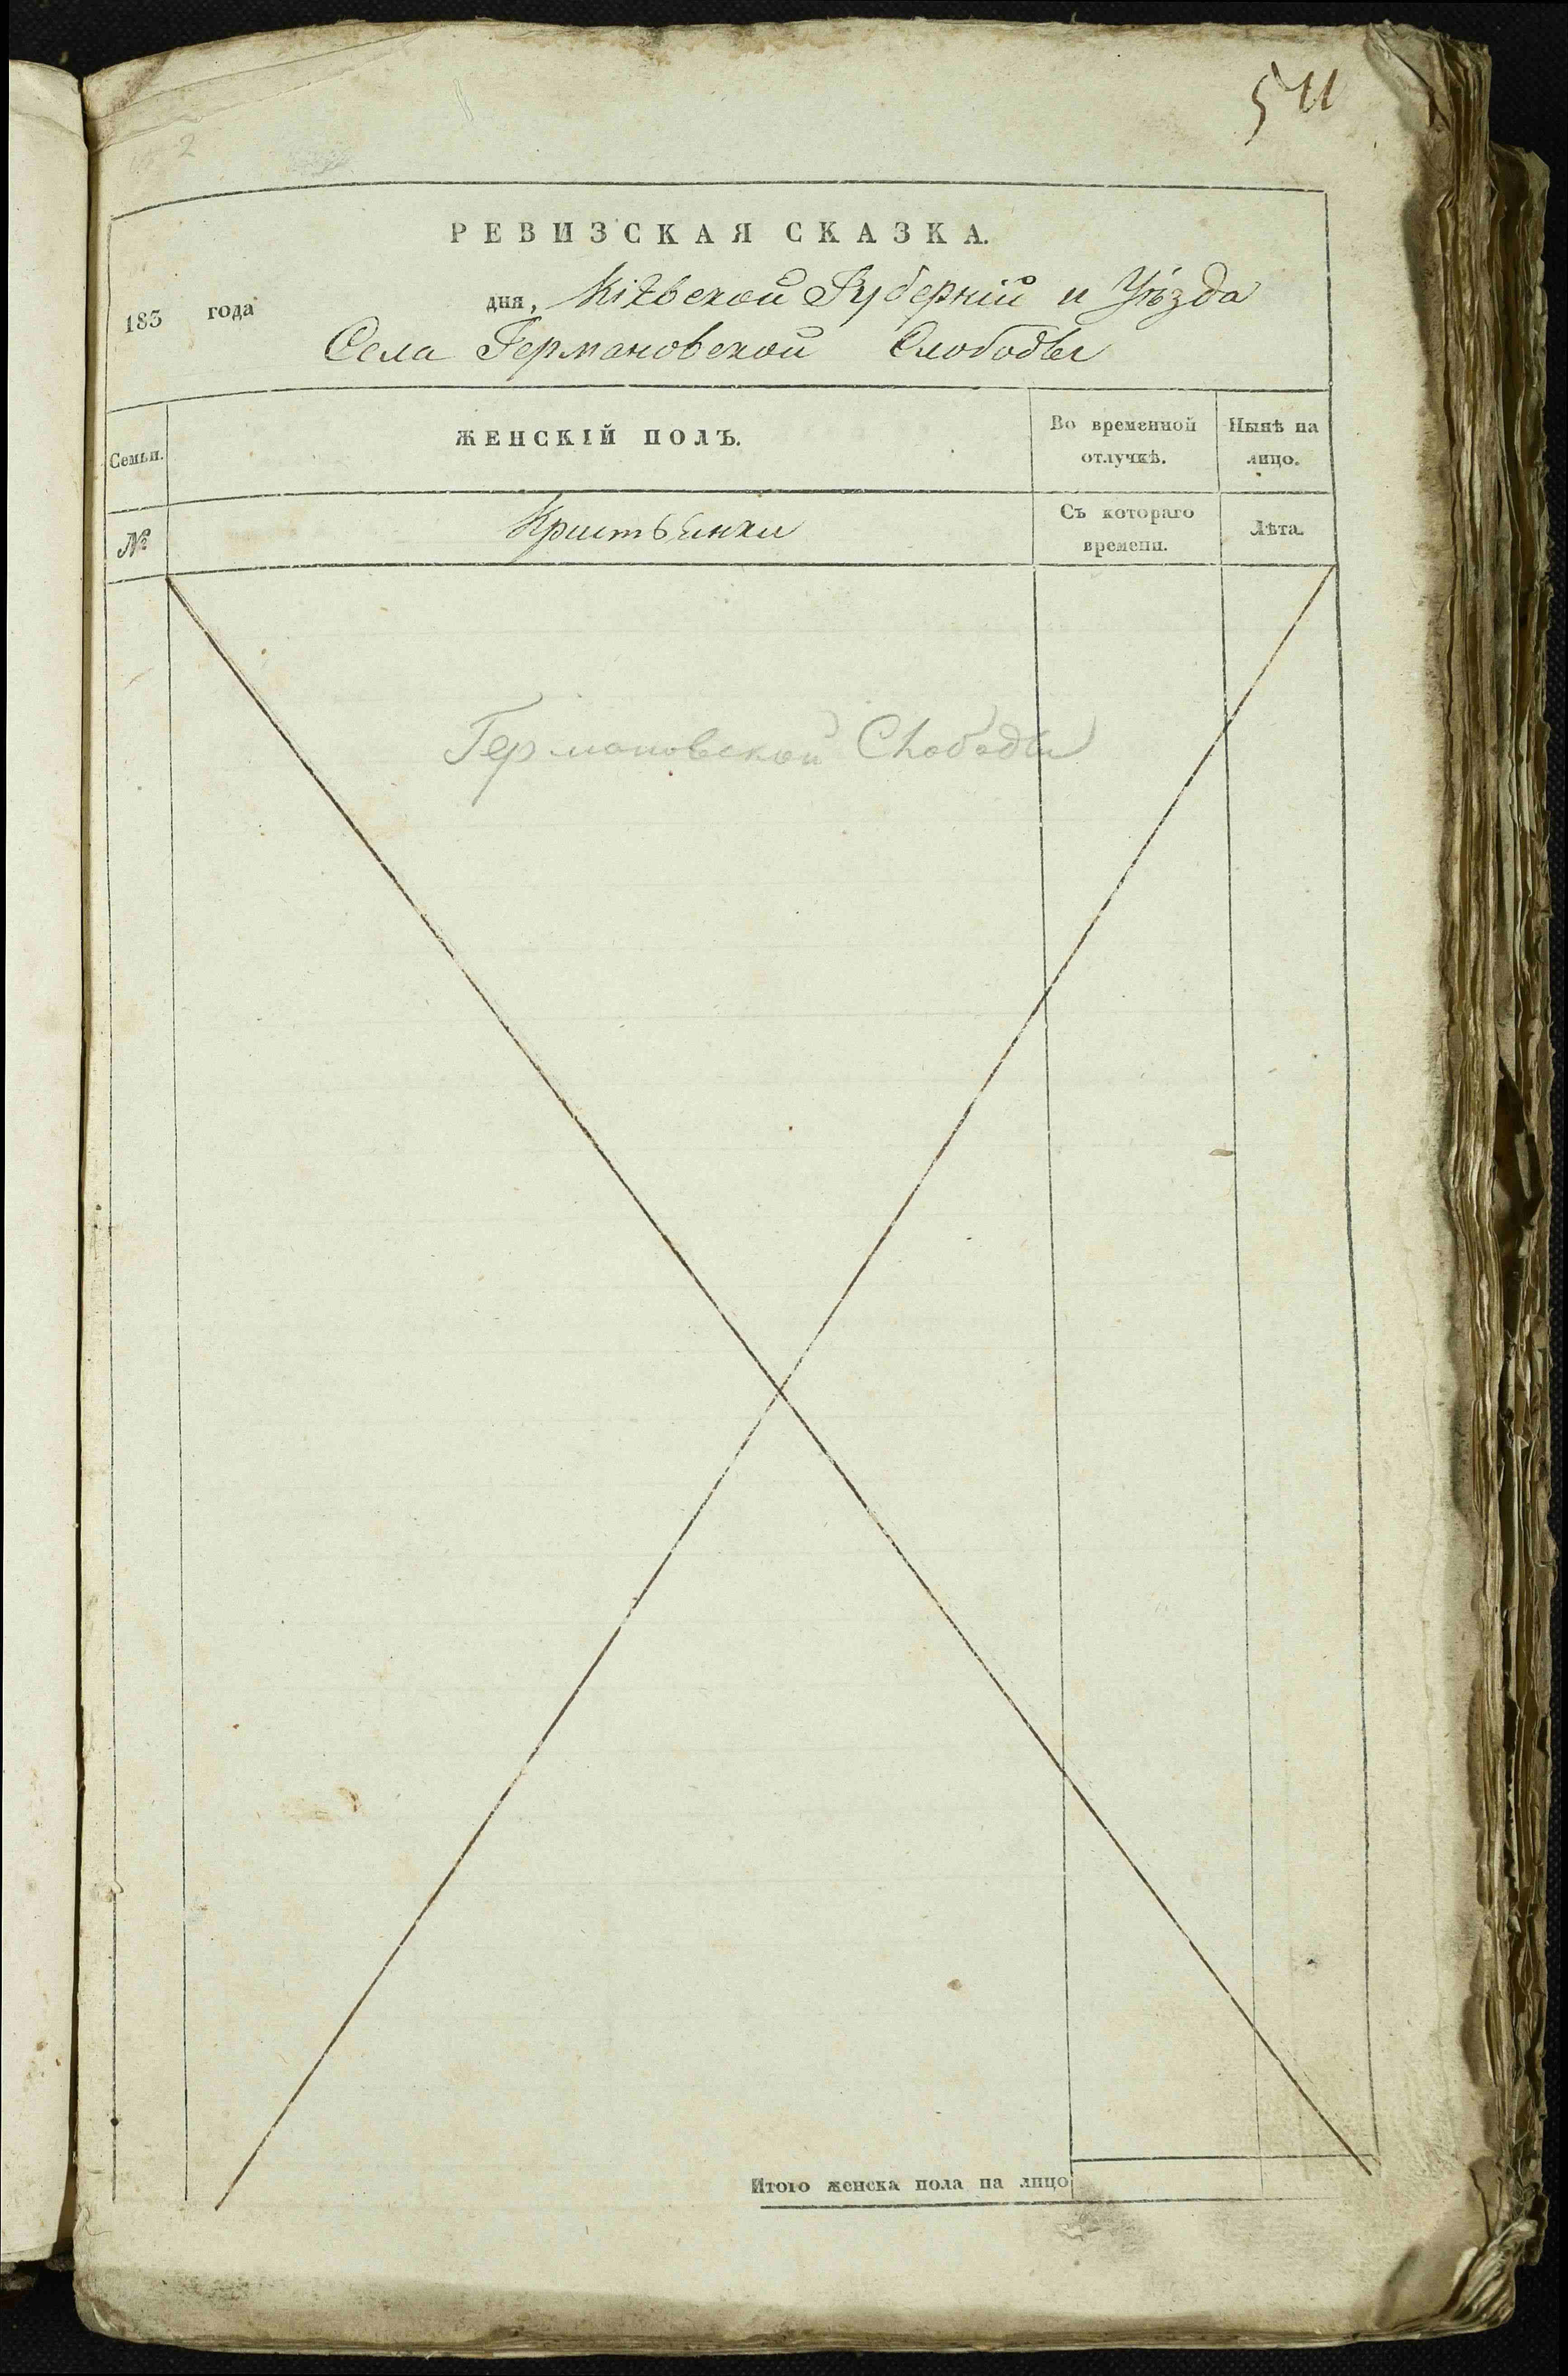 511
РЕВИЗСКАЯ СКАЗКА.
183 года дня, Кіевской Губерніи и Уѣзда
Села Германовской Слободы
Семьи. ЖЕНСКІЙ ПОЛЪ. Во временной отлучкѣ. Нынѣ на лицо.
№ Кристьянки Съ котораго времени. Лѣта.
Германовской Слободы
Итого женска пола на лицо